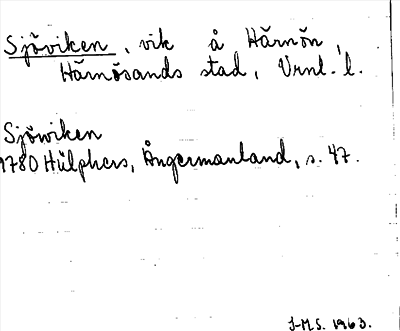 Sjöviken, vik å Härnön,
Härnösands stad, Vrnl. l.
Sjöwiken
1780 Hülphers, Ångermanland, s. 47.
J-M S. 1963.